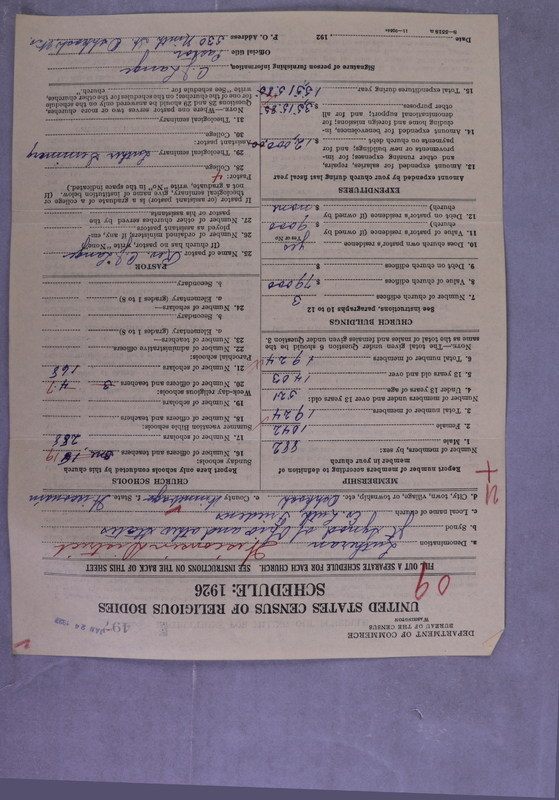 DEPARTMENT OF COMMERCE
BUREAU OF THE CENSUS
WASHINGTON
JAN 24 1928
UNITED STATES CENSUS OF RELIGIOUS BODIES
SCHEDULE: 1926
09
FILL OUT A SEPARATE SCHEDULE FOR EACH CHURCH. SEE INSTRUCTIONS ON THE BACK OF THIS SHEET
a. Denomination Lutheran Wisconsin District
b. Synod Jt Synod of Ohio and other States
c. Local name of church Ev Luth Friedens
d. City, town, village, or township, etc. Oshkosh e. County Winnebago f. State Wisconsin
MEMBERSHIP
Report number of members according to definition of member in your church
Number of members, by sex:
1. Male 882
2. Female 1042
3. Total number of members 1924
Number of members under and over 13 years old:
4. Under 13 years of age 521
5. 13 years old and over 1403
6. Total number of members 1924
NOTE.—The total given under Question 6 should be the same as the total of males and females given under Question 3.
CHURCH BUILDINGS
See Instructions, paragraphs 10 to 12
7. Number of church edifices 3
8. Value of church edifices $ 79000
9. Debt on church edifices $
10. Does church own pastor's residence yes
Yes or No
11. Value of pastor's residence (if owned by church) $ 9000
12. Debt on pastor's residence (if owned by church) $ none
EXPENDITURES
Amount expended by your church during last fiscal year
13. Amount expended for salaries, repairs, and other running expenses; for improvements or new buildings; and for payments on church debt $ 12,000.00
14. Amount expended for benevolences, including home and foreign missions; for denominational support; and for all other purposes $ 3515.85
15. Total expenditures during year
CHURCH SCHOOLS
Report here only schools conducted by this church
Sunday schools:
16. Number of officers and teachers 19
17. Number of scholars 288
Summer vacation Bible schools:
18. Number of officers and teachers
19. Number of scholars
Week-day religious schools:
20. Number of officers and teachers
21. Number of scholars 168
Parochial schools:
22. Number of administrative officers
23. Number of teachers—
a. Elementary (grades 1 to 8)
b. Secondary
24. Number of scholars—
a. Elementary (grades 1 to 8)
b. Secondary
PASTOR
25. Name of pastor Rev.
(If church has no pastor, write "None")
26. Number of ordained ministers, if any, employed as assistant pastors
27. Number of other churches served by the pastor or his assistants
If pastor (or assistant pastor) is a graduate of a college or theological seminary, give name of institution below. (If not a graduate, write "No" in the space indicated.)
Pastor:
28. College
29. Theological seminary Luther Seminary
Assistant pastor:
30. College
31. Theological seminary
NOTE.—Where one pastor serves two or more churches, Questions 28 and 29 should be answered only on the schedule for one of the churches; on the schedules for the other churches, write "See schedule for church."
Signature of person furnishing information,
Official title Pastor
P. O. Address 530 Ninth St Oshkosh Wis.
Date , 192